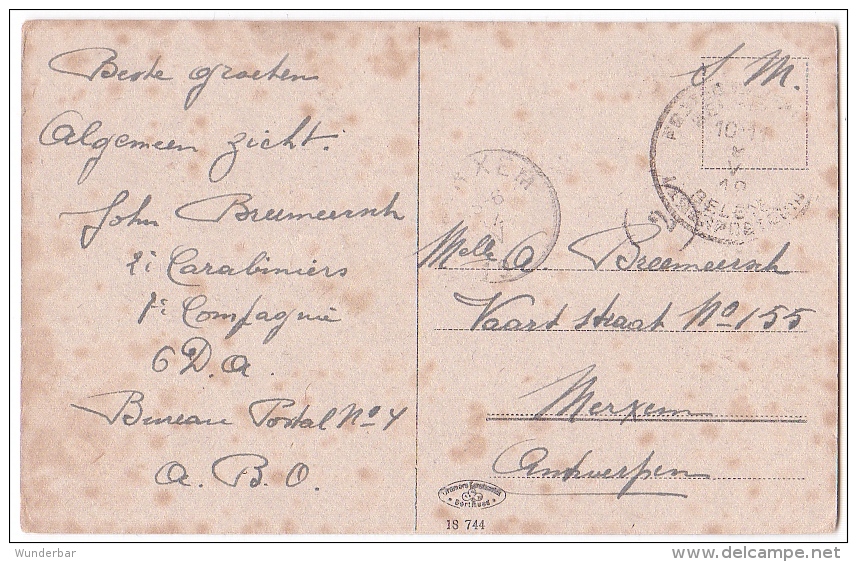 Beste groeten
Algemeen zicht.
John Breemeersch
2e Carabiniers
7e Compagnie
6 D.A.
Bureau Postal No 4
A.B.O.
S M.
10-11
19
BELG
XEM
6
4
Melle A. Breemeersch
Vaart straat No 155
Merxem
Antwerpen
Dortmund
18 744
Wunderbar
www.delcampe.net